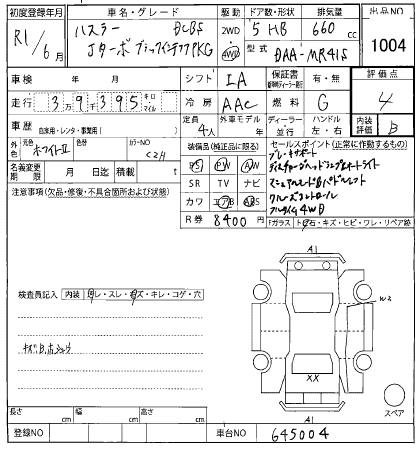 初度登録年月 車名・グレード 駆動 ドア数・形状 排気量 出品NO
R1/6月 ハスラー DCBS 2WD 4WD 5 HB 660 cc 1004
Jターボ PKG 型式 DAA-MR41S
車検 年 月 シフト IA 保証書 有・無 評価点
走行 3万9千395 キロ マイル 冷房 AAC 燃料 G 4
車歴 自家用・レンタ・事業用( ) 定員 4人 外車モデル 年 ディーラー 並行 ハンドル 左・右 内装評価 B
外色 元色 ホワイトII 色替 カラーNO C2H 装備品(純正品に限る) セールスポイント(正常に作動するもの)
名義変更期限 月 日迄 積載量 t PS PW AW
注意事項(欠品・修復・不具合箇所および状態) SR TV ナビ
カワ エアB ABS クルーズコントロール
R券 8400 円 フルタイム4WD
Fガラス トビ石・キズ・ヒビ・ワレ・リペア跡
A1
検査員記入 内装 ヨゴレ・スレ・キズ・キレ・コゲ・穴
W2
XX
スペア
長さ cm 幅 cm 高さ cm A1
登録NO 車台NO 645004